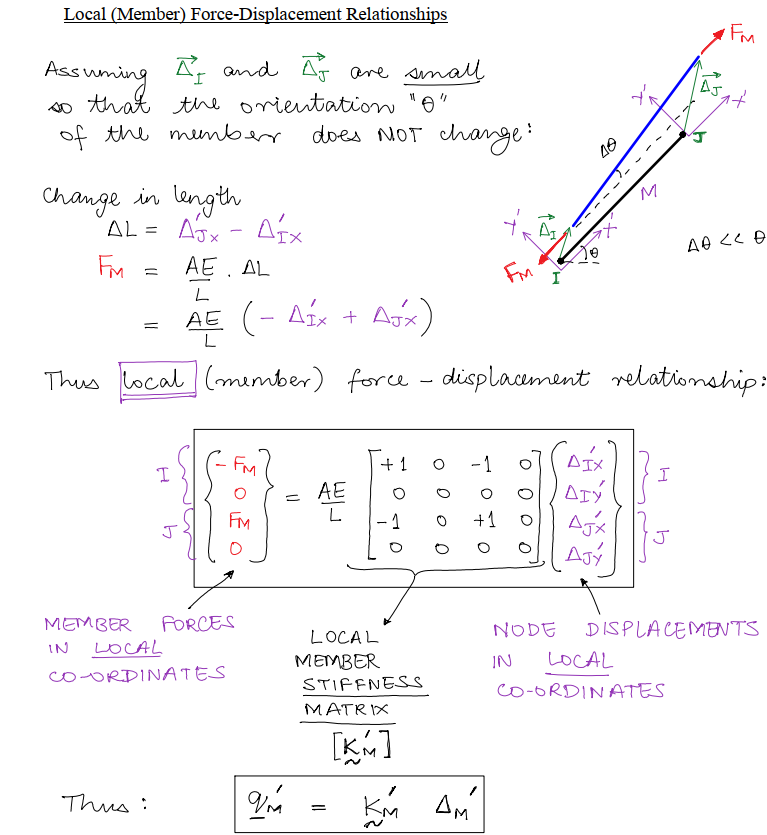 Local (Member) Force-Displacement Relationships
Assuming Δ⃗_I and Δ⃗_J are small
so that the orientation "θ"
of the member does NOT change:
Change in length
ΔL = Δ'_Jx - Δ'_Ix
F_M = AE/L . ΔL
= AE/L (- Δ'_Ix + Δ'_Jx)
F_M
Δ⃗_J
Y' X'
J
Δθ
M
Y' Δ⃗_I X'
Δθ << θ
θ
F_M I
Thus local (member) force - displacement relationship:
I { - F_M +1 0 -1 0 Δ'_Ix } I
0 = AE/L 0 0 0 0 Δ'_Iy
J { F_M -1 0 +1 0 Δ'_Jx } J
0 0 0 0 0 Δ'_Jy
MEMBER FORCES
IN LOCAL
CO-ORDINATES
LOCAL
MEMBER
STIFFNESS
MATRIX
[K'_M]
NODE DISPLACEMENTS
IN LOCAL
CO-ORDINATES
Thus: q'_M = K'_M Δ_M'